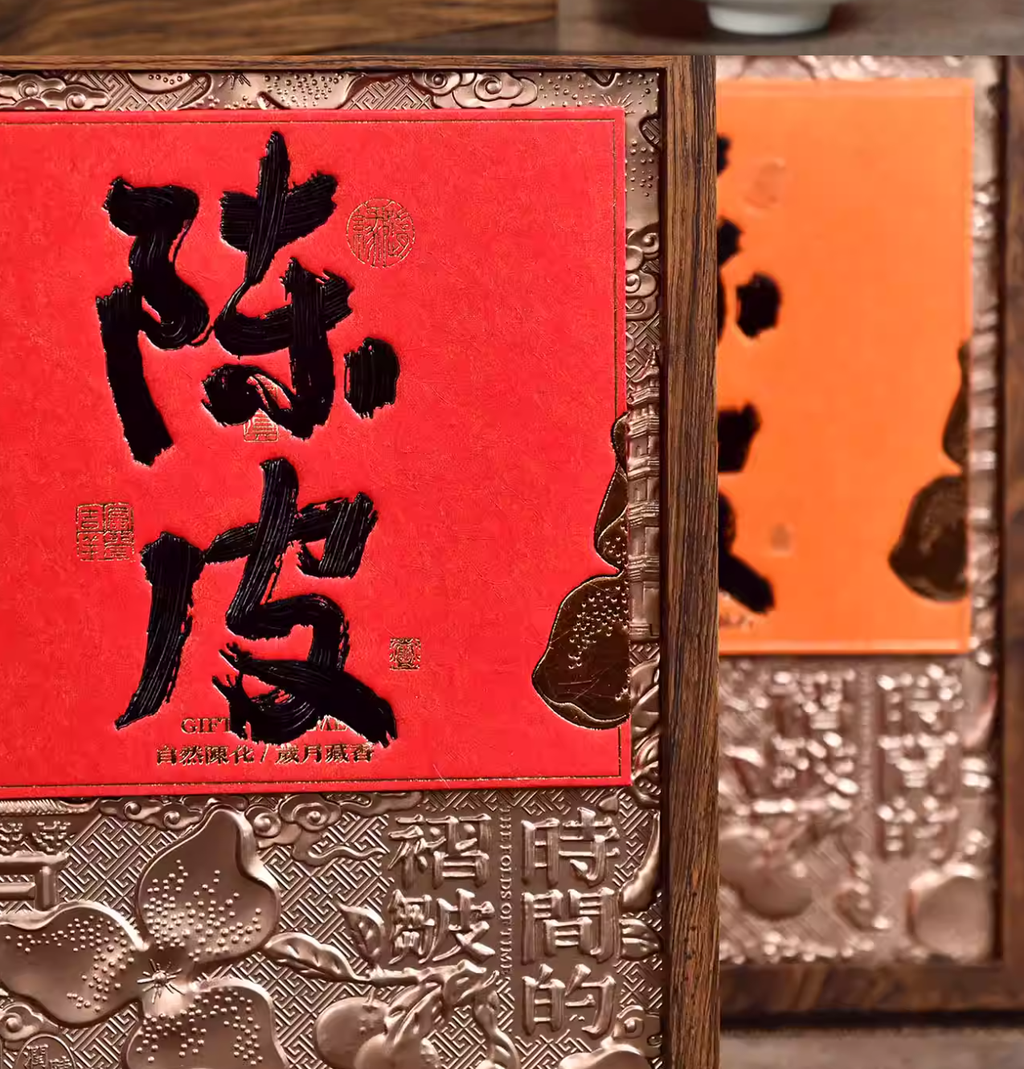 陳
皮
自然陳化 / 歲月藏香
時間的
褶皺
THE FOLDS OF TIME